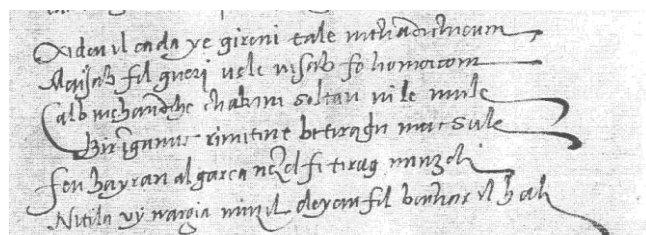 Xideu il cada ye gireni tale nichadithicum
Mensab fil gueri uele nisab fo homorcom
Calb mehandihe chakim soltan ui le mule
Bir imgamic rimitine betiragin mucsule
fen hayran al garca nenzel fi tirag minzeli
Nitila vy nargia ninzil deyem fil bachar il hali